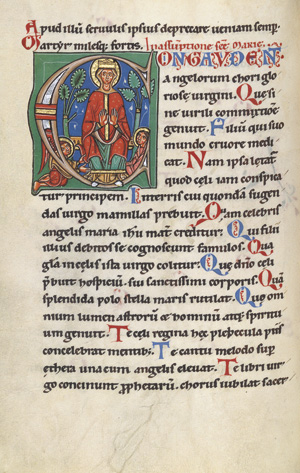 Apud illū seruulis ipsius deprecare ueniam semp.
Martyr milesq; fortis. In assūptione scē marie.
CONGAVDENT
angelorum chori glo
riose uirgini. Que si
ne uirili commixtione
genuit. Filiū qui suo
mundo cruore medi
cat. Nam ipsa letat
quod celi iam conspica
tur principem. In terris cui quondam sugen
das uirgo mamillas prebuit. Quam celebris
angelis maria ihū mat̄ creditur. Qui filii
illius debito se cognoscunt famulos. Qua
gl̄a in celis ista uirgo colitur. Que dn̄o celi
p̄buit hospiciū. sui sanctissimi corporis. Quā
splendida polo stella maris rutilat. Que om
nium lumen astrorū & hominū atq; spiritu
um genuit. Te celi regina hec plebecula piis
concelebrat mentib;. Te cantu melodo sup
ethera una cum angelis eleuat. Te libri uir
go concinunt prophetarū. chorus iubilat sacer